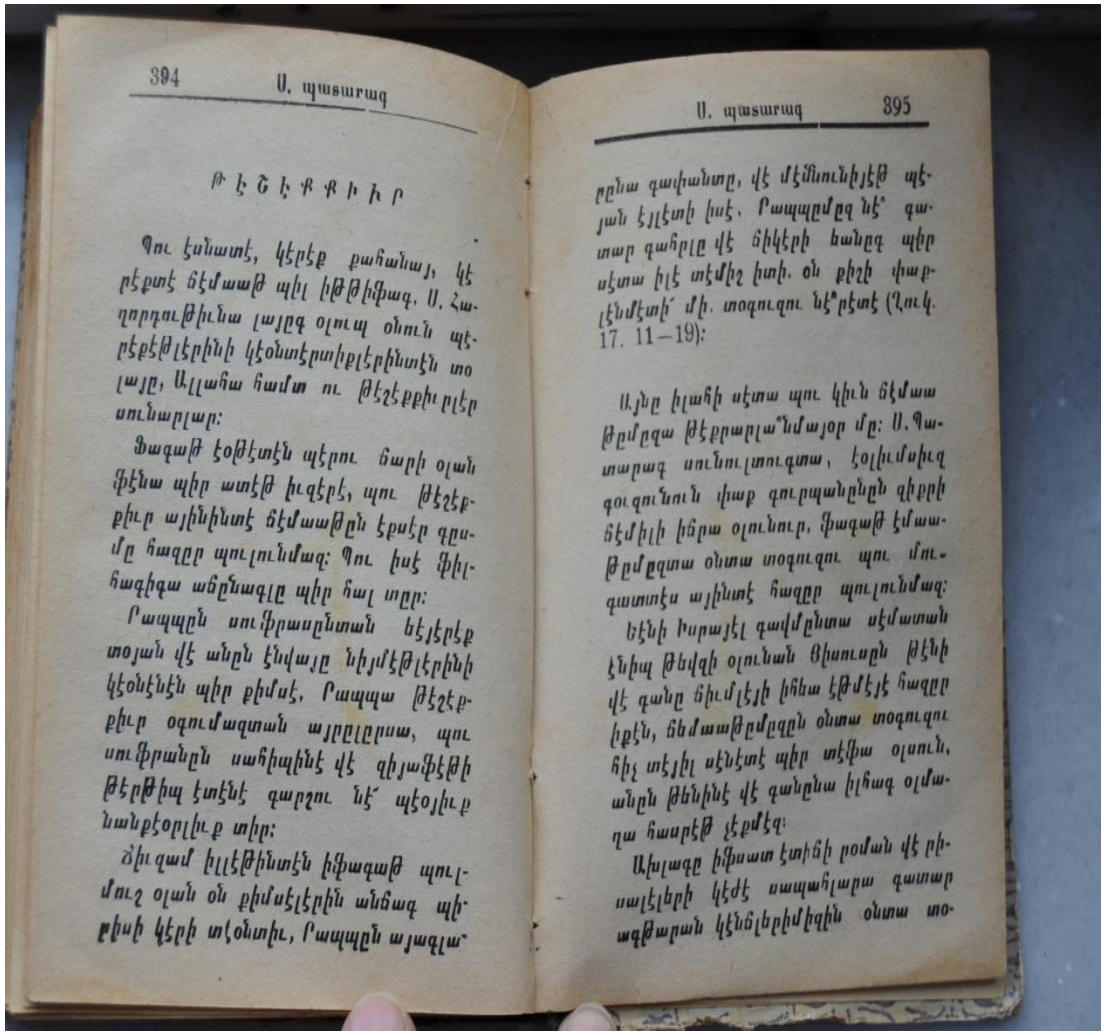 394
Ս. պատարագ
ԹԷՇԷՔՔԻՒՐ
Պու էսնատէ, կէրէք քահանայ, կէ
րէքտէ ճէմաաթ պիլ իթթիֆագ, Ս. Հա-
ղորդութիւնա լայըգ օլուպ օնուն պէ-
րէքէթլէրինի կէօնտէրտիքլէրինտէն տօ
լայը, Ալլահա համտ ու թէշէքքիւրլէր
սունարլար։
Ֆագաթ էօթէտէն պէրու ճարի օլան
ֆէնա պիր ատէթ իւզէրէ, պու թէշէք-
քիւր այինինտէ ճէմաաթըն էքսէր գըս-
մը հազըր պուլունմազ։ Պու իսէ ֆիլ-
հագիգա աճընագլը պիր հալ տըր։
Րապպըն սուֆրասընտան եէյէրէք
տօյան վէ անըն էնվայը նիյմէթլէրինի
կէօնէնէն պիր քիմսէ, Րապպա թէշէք-
քիւր օգումազտան այրըլըրսա, պու
սուֆրանըն սահիպինէ վէ զիյաֆէթի
թէրթիպ էտէնէ գարշու նէ՜ պէօյիւք
նանքէօրլիւք տիր։
Ճիւզամ իլլէթինտէն իֆագաթ պուլ-
մուշ օլան օն քիմսէլէրին անճագ պի-
րիսի կէրի տէօնտիւ, Րապպըն այագլա-
Ս. պատարագ
395
րընա գափանտը, վէ մէմնունիյէթ պէ-
յան էյլէտի իսէ, Րապպըմըզ նէ՞ գա-
տար գահրլը վէ ճիկէրի եանըգ պիր
սէտա իլէ տէմիշ իտի. օն քիշի փաք-
լէնմէտի՞ մի. տօգուզու նէ՞րէտէ (Ղուկ.
17. 11—19)։
Այնը իլահի սէտա պու կիւն ճէմաա
թըմըզա թէքրարլա՞նմայօր մը։ Ս. Պա-
տարագ սունուլտուգտա, էօլիւմսիւզ
գուզունուն փաք գուրպանընըն զիքրի
ճէմիլի իճրա օլունուր, ֆագաթ էմաա-
թըմըզտա օնտա տօգուզու պու մու-
գատտէս այինտէ հազըր պուլունմազ։
Եէնի Իսրայէլ գավմընտա սէմատան
էնիպ թեվզի օլունան Յիսուսըն թէնի
վէ գանը ճիւմլէյի իհեա էթմէյէ հազըր
իքէն, ճեմաաթըմըզըն օնտա տօգուզու
հիչ տէյիլ սէնէտէ պիր տէֆա օլսուն,
անըն թենինէ վէ գանընա իլհագ օլմա-
ղա հասրէթ չէքմէզ։
Ախլագը իֆսատ էտիճի րօման վէ րի-
սալէլերի կէժէ սապահլարա գատար
ագթարան կէնճլերիմիզին օնտա տօ-